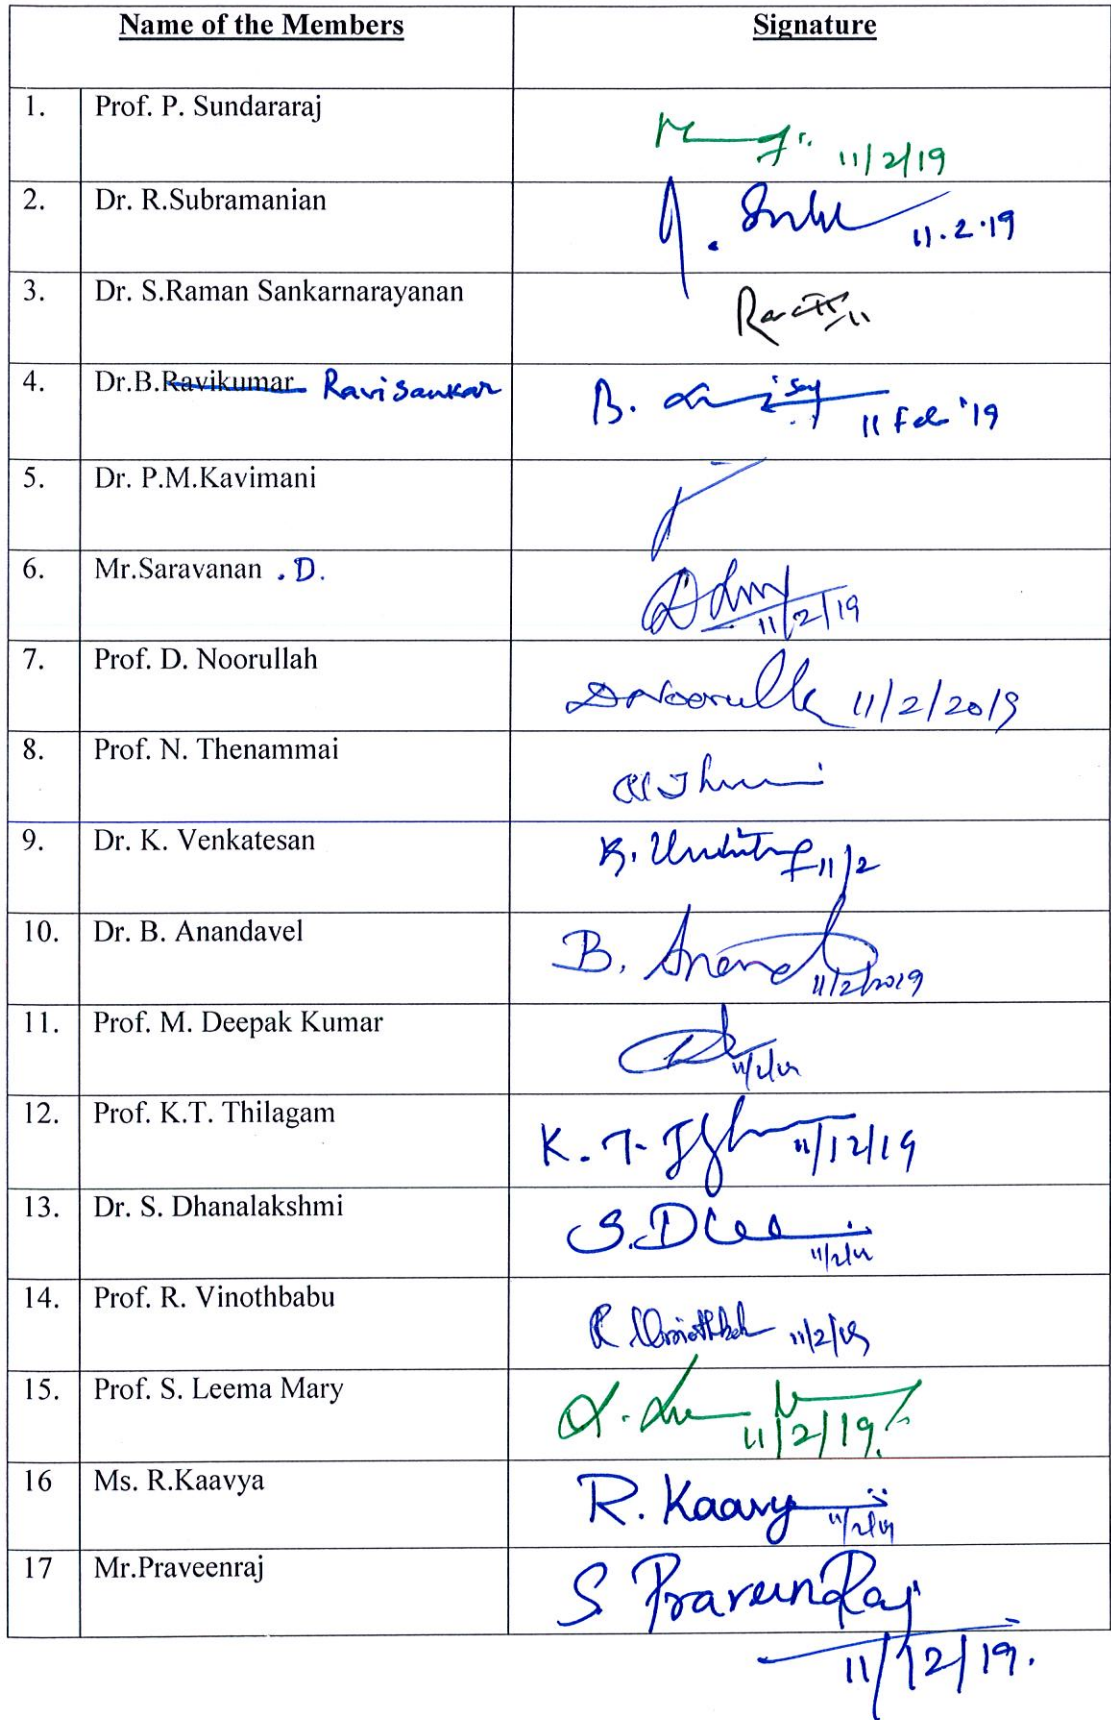 Name of the Members Signature
1. Prof. P. Sundararaj 11/2/19
2. Dr. R.Subramanian 11.2.19
3. Dr. S.Raman Sankarnarayanan
4. Dr.B.Ravikumar Ravisankar B. 11 Feb '19
5. Dr. P.M.Kavimani
6. Mr.Saravanan . D. 11/2/19
7. Prof. D. Noorullah DNoorulla 11/2/2019
8. Prof. N. Thenammai
9. Dr. K. Venkatesan K. 11/2
10. Dr. B. Anandavel B. Anand 11/2/2019
11. Prof. M. Deepak Kumar
12. Prof. K.T. Thilagam K. T. 11/12/19
13. Dr. S. Dhanalakshmi S.D
14. Prof. R. Vinothbabu R. 11/2/19
15. Prof. S. Leema Mary 11/2/19.
16 Ms. R.Kaavya R. Kaavy 11/2/19
17 Mr.Praveenraj S PraveenRaj
11/12/19.